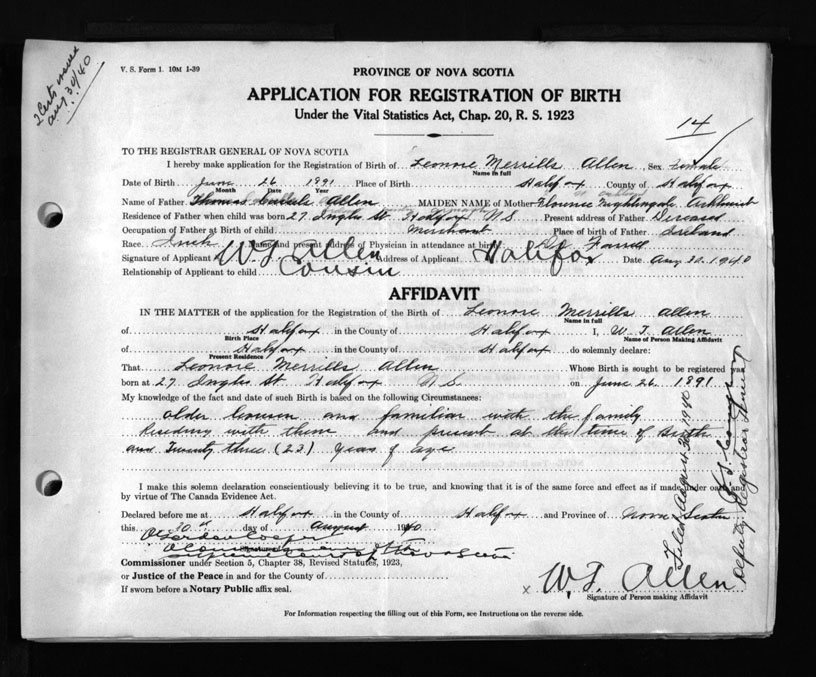 2 Certs issued
Aug 30/40
V. S. Form 1. 10M 1-39
PROVINCE OF NOVA SCOTIA
APPLICATION FOR REGISTRATION OF BIRTH
Under the Vital Statistics Act, Chap. 20, R. S. 1923
14
TO THE REGISTRAR GENERAL OF NOVA SCOTIA
I hereby make application for the Registration of Birth of Leonore Merrills Allen Sex Female
Name in full
Date of Birth June 26 1891 Place of Birth Halifax County of Halifax
Month Date Year
Name of Father Thomas Carlisle Allen MAIDEN NAME of Mother Florence Nightingale
Residence of Father when child was born 27 Inglis St Halifax N.S. Present address of Father Deceased
Occupation of Father at Birth of child Merchant Place of birth of Father Ireland
Race Irish Name and present address of Physician in attendance at birth Dr Farrell
Signature of Applicant W.T. Allen Address of Applicant Halifax Date Aug 30 1940
Relationship of Applicant to child Cousin
AFFIDAVIT
IN THE MATTER of the application for the Registration of the Birth of Leonore Merrills Allen
Name in full
of Halifax in the County of Halifax I, W. T. Allen
Birth Place Name of Person Making Affidavit
of Halifax in the County of Halifax do solemnly declare:
Present Residence
That Leonore Merrills Allen Whose Birth is sought to be registered was
born at 27 Inglis St Halifax N.S. on June 26 1891
My knowledge of the fact and date of such Birth is based on the following Circumstances:
older cousin and familiar with the family
Residing with them and present at the time of Birth
and Twenty three (23) years of age
I make this solemn declaration conscientiously believing it to be true, and knowing that it is of the same force and effect as if made under oath and
by virtue of The Canada Evidence Act.
Declared before me at Halifax in the County of Halifax and Province of Nova Scotia
this 30th day of August 1940
Supreme Court of Nova Scotia
Commissioner under Section 5, Chapter 38, Revised Statutes, 1923,
or Justice of the Peace in and for the County of
If sworn before a Notary Public affix seal.
x W. T. Allen
Signature of Person making Affidavit
For Information respecting the filling out of this Form, see Instructions on the reverse side.
Filed August 30 1940
Deputy Registrar General